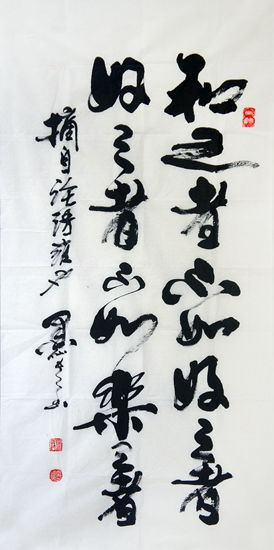 知之者不如好之者
好之者不如樂之者
摘自论语雍也